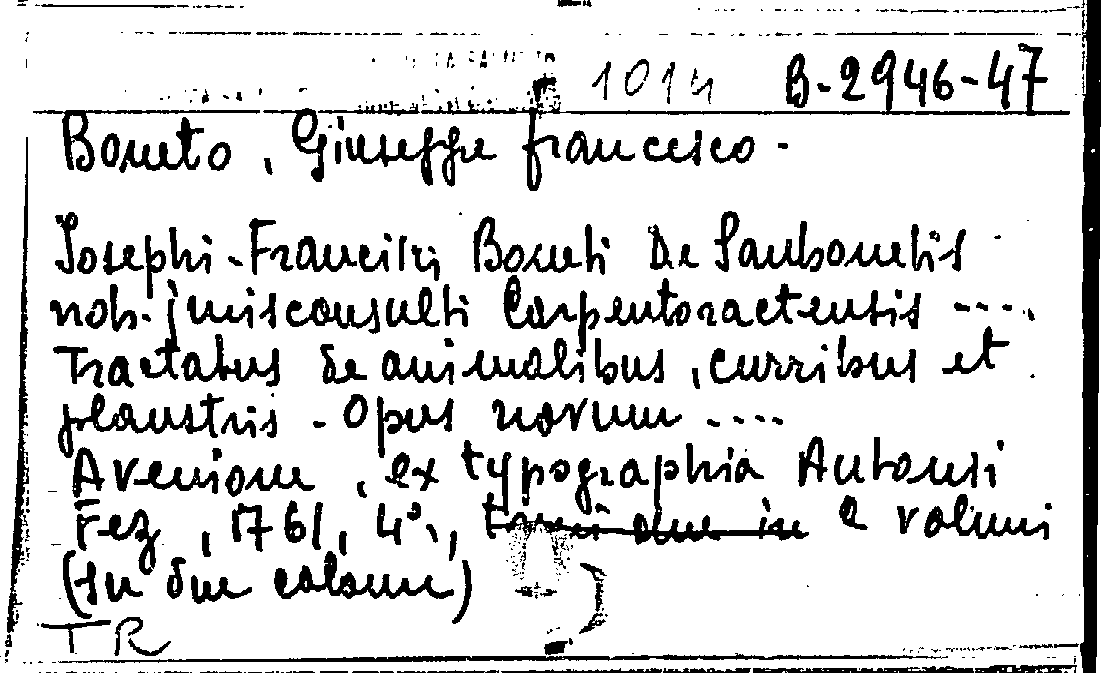 1014 B-2946-47
Boneto, Giuseppe Francesco.
Josephi-Francisci Boneti De Sanbonetis
nob. jurisconsulti Carpentoractensis ....
Tractatus de animalibus, curribus et
plaustris. Opus novum ....
Avenione, ex typographia Antonii
Fez, 1761, 4°., tomi due in 2 volumi
(su due colonne)
TR